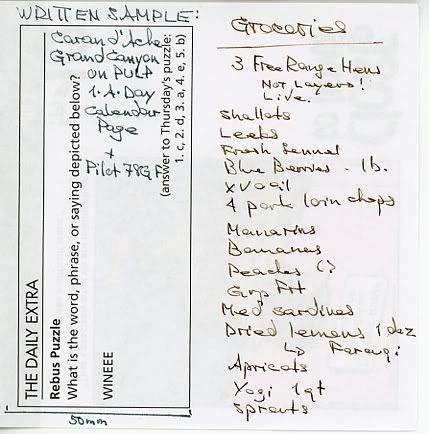 WRITTEN SAMPLE:
Caran d'Ache
Grand Canyon
on PULP
1.A.Day
Calendar
Page
+
Pilot 78G F
THE DAILY EXTRA
Rebus Puzzle
What is the word, phrase, or saying depicted below?
WINEEE
(answer to Thursday's puzzle:
1. c, 2. d, 3. a, 4. e, 5. b)
50mm
Groceries
3 Free Range Hens
Not Layers!
Live.
Shallots
Leeks
Fresh Fennel
Blue Berries . 1b.
xvoil
4 pork loin chops
Manarins
Bananas
Peaches (?)
Grp Frt
Med sardines
Dried lemons 1 doz
↳ Farouqi
Apricots
Yogi 1qt
Sprouts